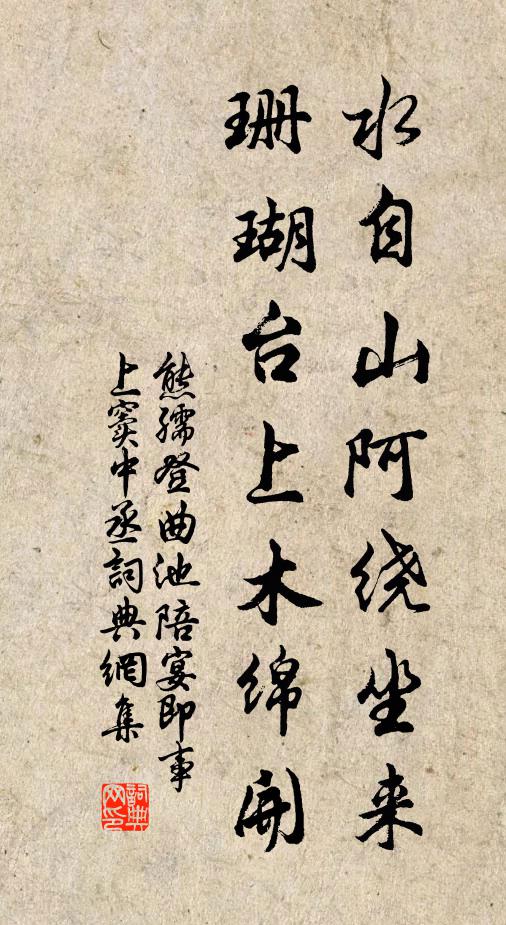 水自山阿绕坐来
珊瑚台上木绵開
熊孺登曲池陪宴即事
上窦中丞詞典網集
詞典
网印